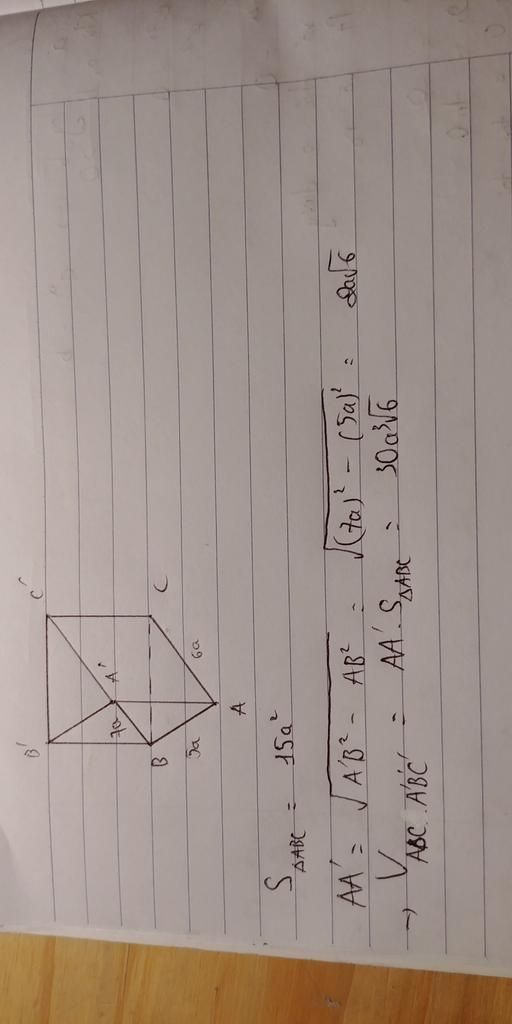 B' C'
A'
7a
B C
5a 6a
A
S△ABC = 15a²
AA' = √(A'B² - AB²) = √((7a)² - (5a)²) = 2a√6
→ VABC.A'B'C' = AA'.S△ABC = 30a³√6